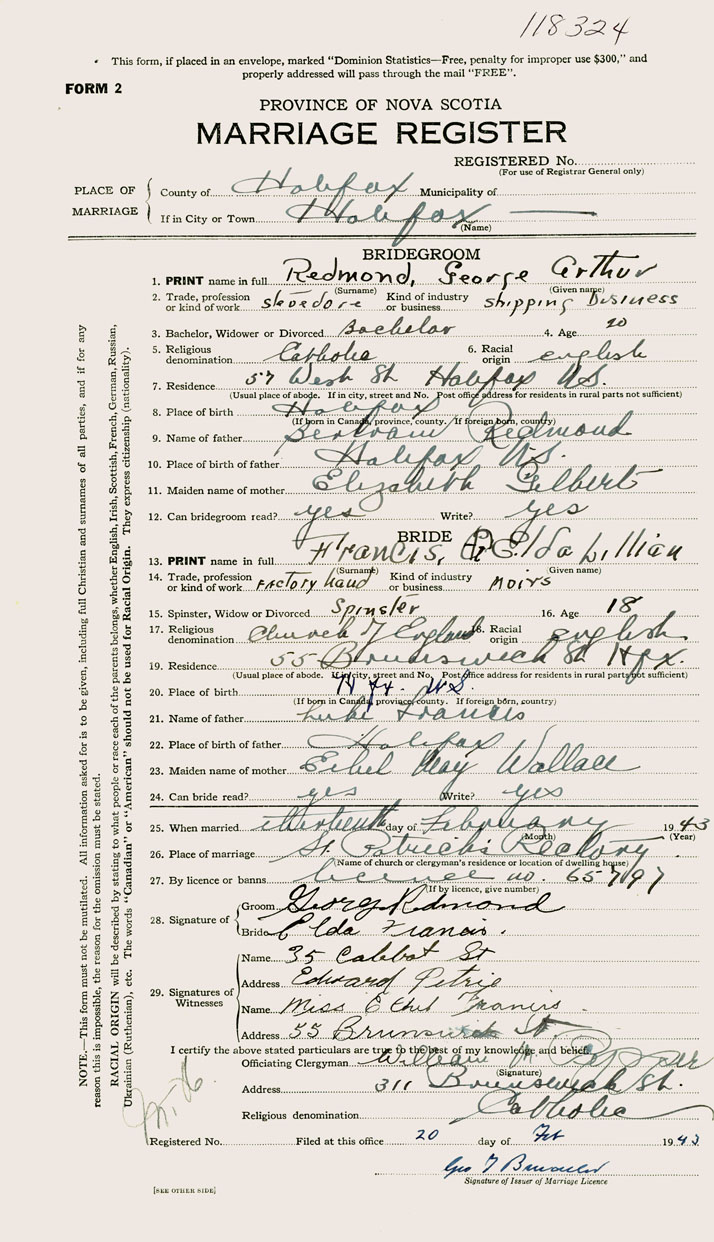 118324
This form, if placed in an envelope, marked "Dominion Statistics—Free, penalty for improper use $300," and
properly addressed will pass through the mail "FREE".
FORM 2
PROVINCE OF NOVA SCOTIA
MARRIAGE REGISTER
REGISTERED No.
(For use of Registrar General only)
PLACE OF MARRIAGE
County of Halifax Municipality of
If in City or Town Halifax
(Name)
BRIDEGROOM
1. PRINT name in full Redmond, George Arthur
(Surname) (Given name)
2. Trade, profession or kind of work stevedore Kind of industry or business shipping Business
3. Bachelor, Widower or Divorced Bachelor 4. Age 20
5. Religious denomination Catholic 6. Racial origin english
7. Residence 57 West St Halifax N.S.
(Usual place of abode. If in city, street and No. Post office address for residents in rural parts not sufficient)
8. Place of birth Halifax
(If born in Canada, province, county. If foreign born, country)
9. Name of father Bertram Redmond
10. Place of birth of father Halifax N.S.
11. Maiden name of mother Elizabeth Gilbert
12. Can bridegroom read? yes Write? yes
BRIDE
13. PRINT name in full Francis, Elda Lillian
(Surname) (Given name)
14. Trade, profession or kind of work Factory hand Kind of industry or business moirs
15. Spinster, Widow or Divorced Spinster 16. Age 18
17. Religious denomination Church of England 18. Racial origin english
19. Residence 55 Brunswick St Hfx.
(Usual place of abode. If in city, street and No. Post office address for residents in rural parts not sufficient)
20. Place of birth Hfx. N.S.
(If born in Canada, province, county. If foreign born, country)
21. Name of father Luke Francis
22. Place of birth of father Halifax
23. Maiden name of mother Ethel May Wallace
24. Can bride read? yes Write? yes
25. When married day of February 1943
(Month) (Year)
26. Place of marriage St Patricks Rectory
(Name of church or clergyman's residence or location of dwelling house)
27. By licence or banns licence no. 65797
(If by licence, give number)
28. Signature of
Groom George Redmond
Bride Elda Francis.
29. Signatures of Witnesses
Name 35 Cabbot St
Address Edward Petrie
Name Miss Ethel Francis
Address 55 Brunswick St
I certify the above stated particulars are true to the best of my knowledge and belief.
Officiating Clergyman William
(Signature)
Address 311 Brunswick St.
Religious denomination Catholic
Registered No. Filed at this office 20 day of Feb 1943
Geo
Signature of Issuer of Marriage Licence
[SEE OTHER SIDE]
NOTE.—This form must not be mutilated. All information asked for is to be given, including full Christian and surnames of all parties, and if for any
reason this is impossible, the reason for the omission must be stated.
RACIAL ORIGIN will be described by stating to what people or race each of the parents belongs, whether English, Irish, Scottish, French, German, Russian,
Ukrainian (Ruthenian), etc. The words "Canadian" or "American" should not be used for Racial Origin. They express citizenship (nationality).